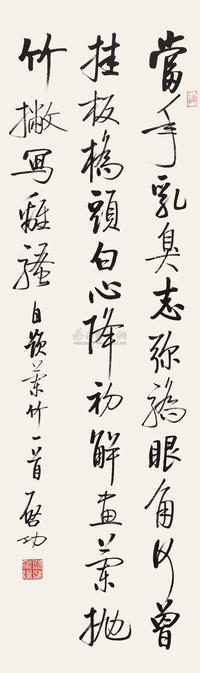 當年乳臭志弥驕眼角何曾
挂板橋頭白心降初解畫蘭拋
竹撇寫離騷 自題蘭竹一首 啓功